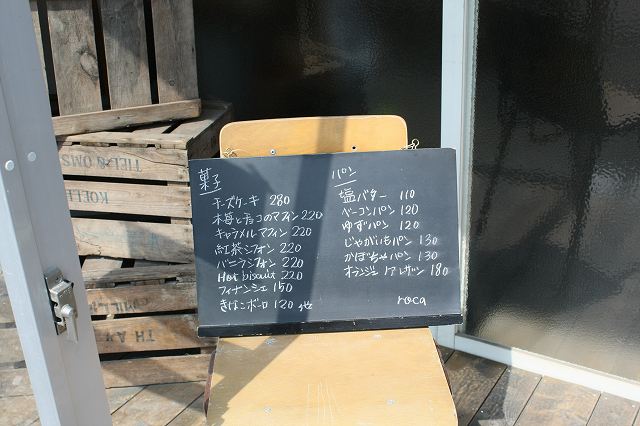 菓子
チーズケーキ 280
木苺とチョコのマフィン 220
キャラメルマフィン 220
紅茶シフォン 220
バニラシフォン 220
Hot biscuit 220
フィナンシェ 150
きなこボーロ 120 他
パン
塩バター 110
ベーコンパン 120
ゆずパン 120
じゃがいもパン 130
かぼちゃパン 130
オランジュ 180
roca
TIEL & OMS
KOELL
TH AY